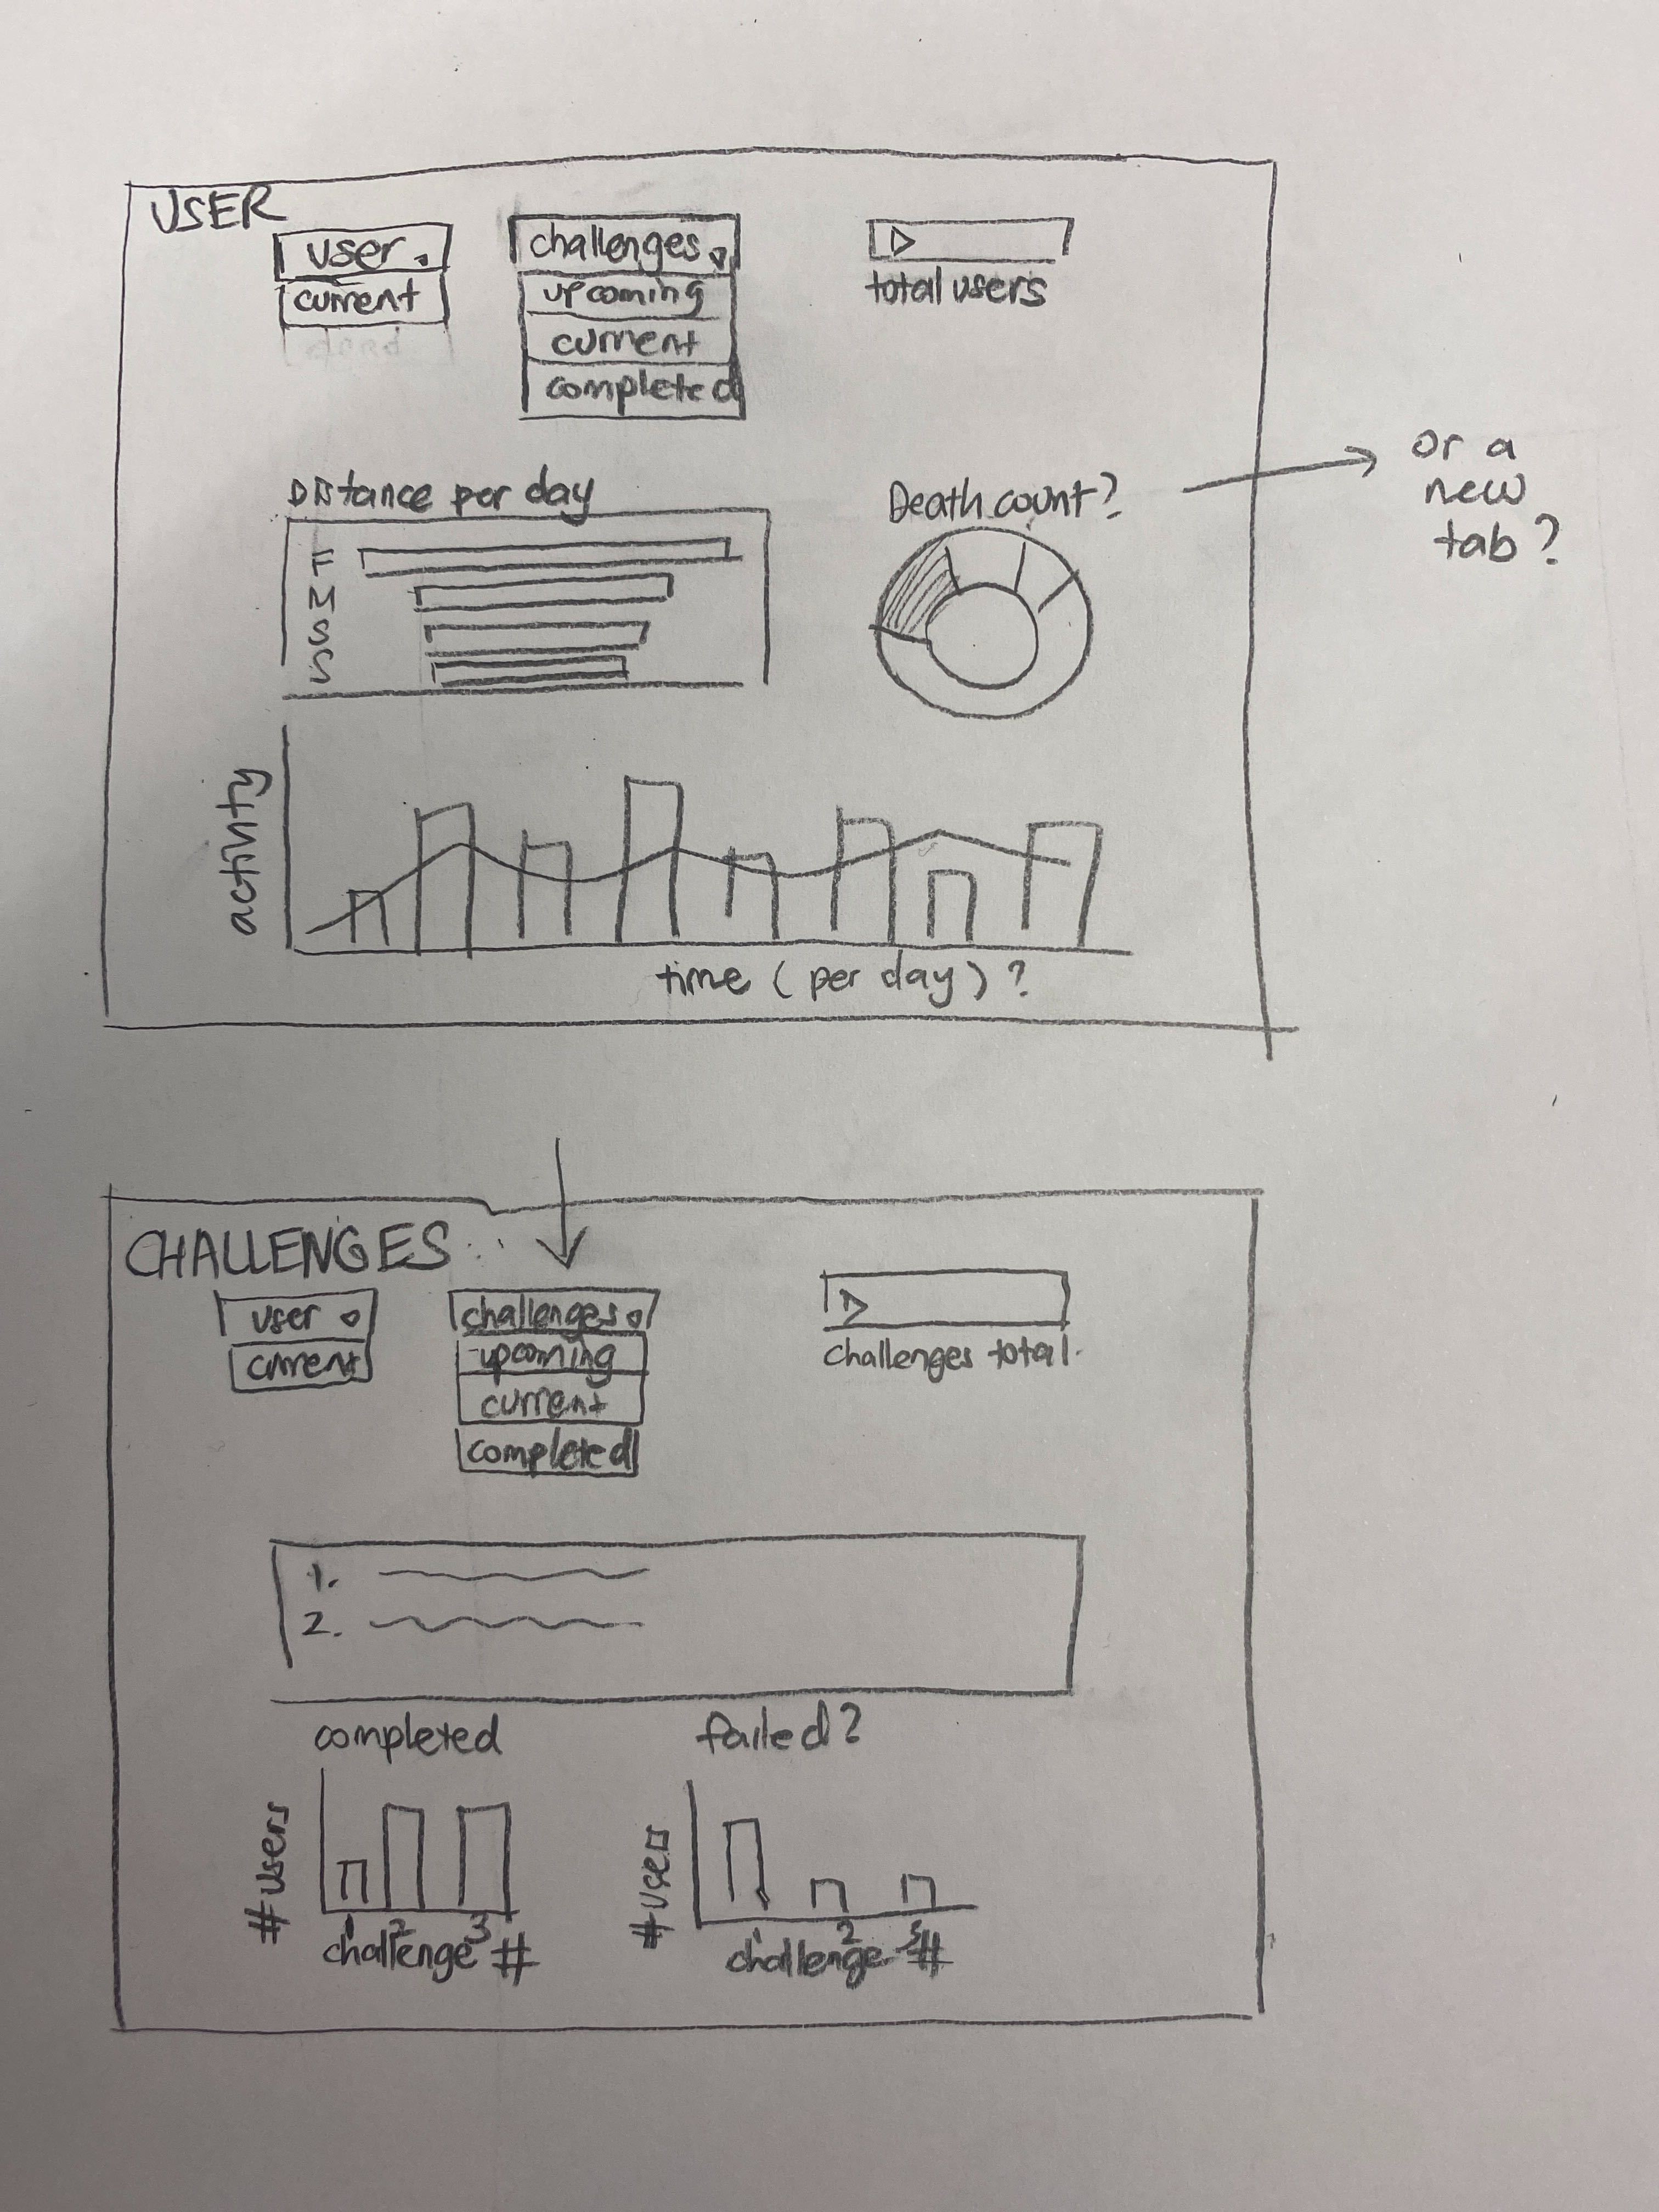 USER
user
current
challenges
upcoming
current
completed
total users
Distance per day
F
M
S
S
Death count?
or a
new
tab?
activity
time (per day)?
CHALLENGES
user
current
challenges
upcoming
current
completed
challenges total.
1.
2.
completed
# users
1 2 3
challenge #
failed?
# users
1 2
challenge #